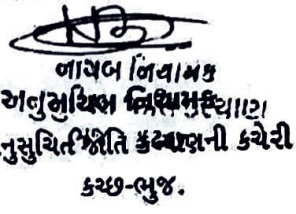 નાયબ નિયામક
અનુસુચિત
નુસુચિત જાતિ કલ્યાણની કચેરી
કચ્છ-ભુજ.